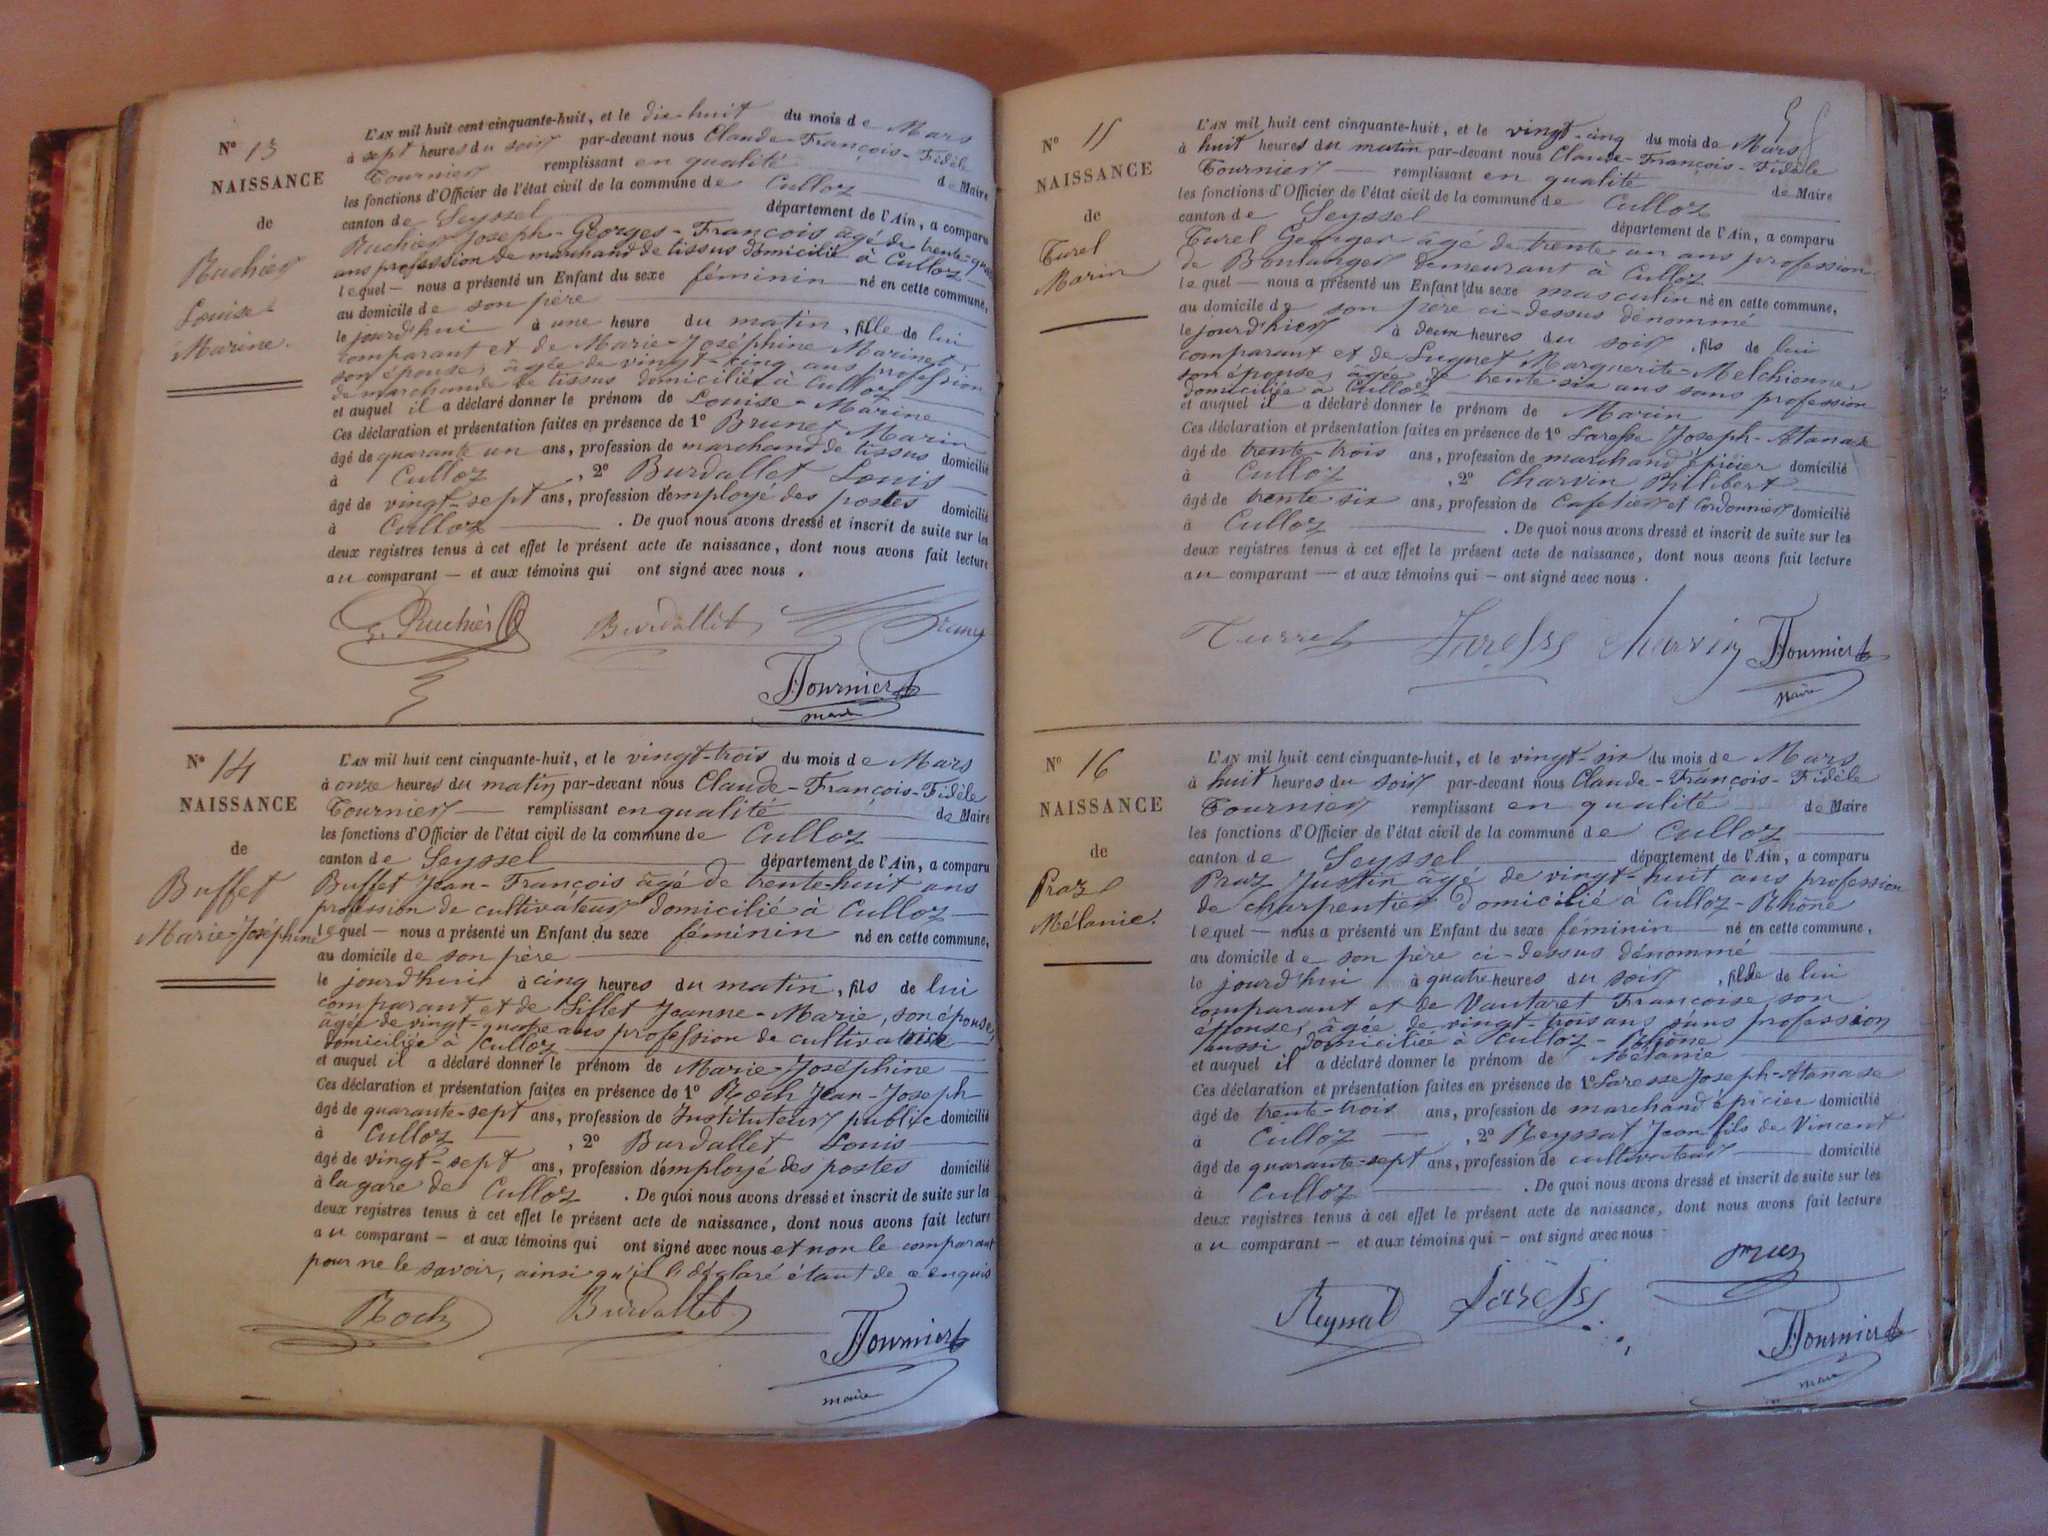 N° 13
NAISSANCE
de
Ruchier
Louise
Marine.
L'AN mil huit cent cinquante-huit, et le dix huit du mois de Mars
à sept heures du soir par-devant nous Claude-François-Fidèle
Fournier remplissant en qualité de Maire
les fonctions d'Officier de l'état civil de la commune de Culloz
canton de Seyssel département de l'Ain, a comparu
Ruchier Joseph-Georges-François âgé de trente-quatre
ans profession de marchand de tissus domicilié à Culloz
lequel — nous a présenté un Enfant du sexe féminin né en cette commune,
au domicile de son père
le jourd'hui à une heure du matin, fille de lui
comparant et de Marie-Joséphine Marinet,
son épouse, âgée de vingt-cinq ans profession
de marchande de tissus domiciliée à Culloz
et auquel il a déclaré donner le prénom de Louise-Marine
Ces déclaration et présentation faites en présence de 1° Brunet Marin
âgé de quarante un ans, profession de marchand de tissus domicilié
à Culloz, 2° Burdallet Louis
âgé de vingt-sept ans, profession d'employé des postes domicilié
à Culloz. De quoi nous avons dressé et inscrit de suite sur les
deux registres tenus à cet effet le présent acte de naissance, dont nous avons fait lecture
au comparant — et aux témoins qui ont signé avec nous.
Ruchier Burdallet Brunet
Fournier
maire
N° 14
NAISSANCE
de
Buffet
Marie-Joséphine
L'AN mil huit cent cinquante-huit, et le vingt-trois du mois de Mars
à onze heures du matin par-devant nous Claude-François-Fidèle
Fournier — remplissant en qualité de Maire
les fonctions d'Officier de l'état civil de la commune de Culloz
canton de Seyssel département de l'Ain, a comparu
Buffet Jean-François âgé de trente-huit ans
profession de cultivateur domicilié à Culloz —
lequel — nous a présenté un Enfant du sexe féminin né en cette commune,
au domicile de son père
le jourd'hui à cinq heures du matin, fils de lui
comparant et de Lillet Jeanne-Marie, son épouse,
âgée de vingt-quatre ans profession de cultivatrice
domiciliée à Culloz
et auquel il a déclaré donner le prénom de Marie Joséphine
Ces déclaration et présentation faites en présence de 1° Roch Jean-Joseph
âgé de quarante-sept ans, profession de Instituteur public domicilié
à Culloz —, 2° Burdallet Louis
âgé de vingt-sept ans, profession d'employé des postes domicilié
à la gare de Culloz. De quoi nous avons dressé et inscrit de suite sur les
deux registres tenus à cet effet le présent acte de naissance, dont nous avons fait lecture
au comparant — et aux témoins qui ont signé avec nous et non le comparant
pour ne le savoir, ainsi qu'il l'a déclaré étant de ce enquis
Roch Burdallet
Fournier
maire
N° 15
NAISSANCE
de
Turel
Marin
L'AN mil huit cent cinquante-huit, et le vingt-cinq du mois de Mars
à huit heures du matin par-devant nous Claude-François-Fidèle
Fournier — remplissant en qualité de Maire
les fonctions d'Officier de l'état civil de la commune de Culloz
canton de Seyssel département de l'Ain, a comparu
Turel Georges âgé de trente un ans profession
de Boulanger demeurant à Culloz
lequel — nous a présenté un Enfant du sexe masculin né en cette commune,
au domicile de son père ci-dessus dénommé
le jourd'hier à deux heures du soir, fils de lui
comparant et de Luquet Marguerite-Melchionne,
son épouse, âgée de trente six ans sans profession
domiciliée à Culloz
et auquel il a déclaré donner le prénom de Marin
Ces déclaration et présentation faites en présence de 1° Laresse Joseph-Atanase
âgé de trente-trois ans, profession de marchand épicier domicilié
à Culloz, 2° Charvin Philibert
âgé de trente six ans, profession de Cafetier et Cordonnier domicilié
à Culloz. De quoi nous avons dressé et inscrit de suite sur les
deux registres tenus à cet effet le présent acte de naissance, dont nous avons fait lecture
au comparant — et aux témoins qui — ont signé avec nous.
Turrel Laresse Charvin Fournier
maire
N° 16
NAISSANCE
de
Praz
Mélanie.
L'AN mil huit cent cinquante-huit, et le vingt-six du mois de Mars
à huit heures du soir par-devant nous Claude-François-Fidèle
Fournier remplissant en qualité de Maire
les fonctions d'Officier de l'état civil de la commune de Culloz
canton de Seyssel département de l'Ain, a comparu
Praz Justin âgé de vingt-huit ans profession
de charpentier domicilié à Culloz-Rhône
lequel — nous a présenté un Enfant du sexe féminin né en cette commune,
au domicile de son père ci-dessus dénommé
le jourd'hui à quatre heures du soir, fille de lui
comparant et de Vautaret Françoise, son
épouse, âgée de vingt-trois ans sans profession
aussi domiciliée à Culloz-Rhône
et auquel il a déclaré donner le prénom de Mélanie
Ces déclaration et présentation faites en présence de 1° Laresse Joseph-Atanase
âgé de trente-trois ans, profession de marchand épicier domicilié
à Culloz —, 2° Reyssat Jean fils de Vincent
âgé de quarante-sept ans, profession de cultivateur domicilié
à Culloz. De quoi nous avons dressé et inscrit de suite sur les
deux registres tenus à cet effet le présent acte de naissance, dont nous avons fait lecture
au comparant — et aux témoins qui — ont signé avec nous
Reyssat Laresse
Fournier
maire